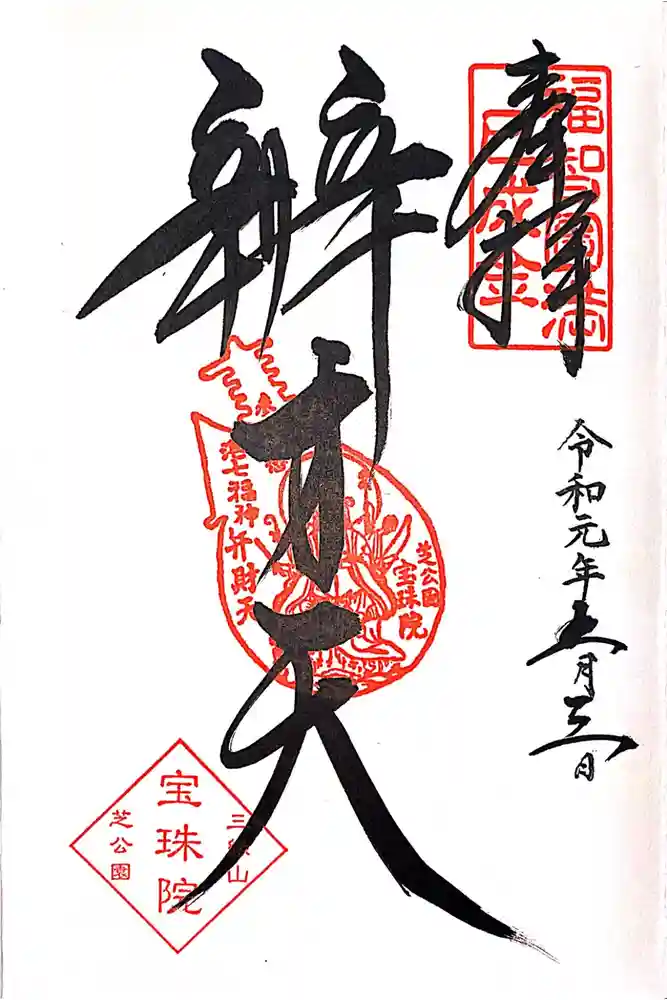 奉拝
福智圓満
令和元年五月三日
辨才天
港七福神弁財天
芝公園
宝珠院
三縁山
宝珠院
芝公園